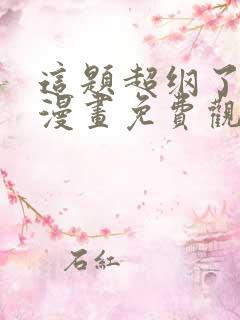 這題超纲了
漫畫免費觀
石紅